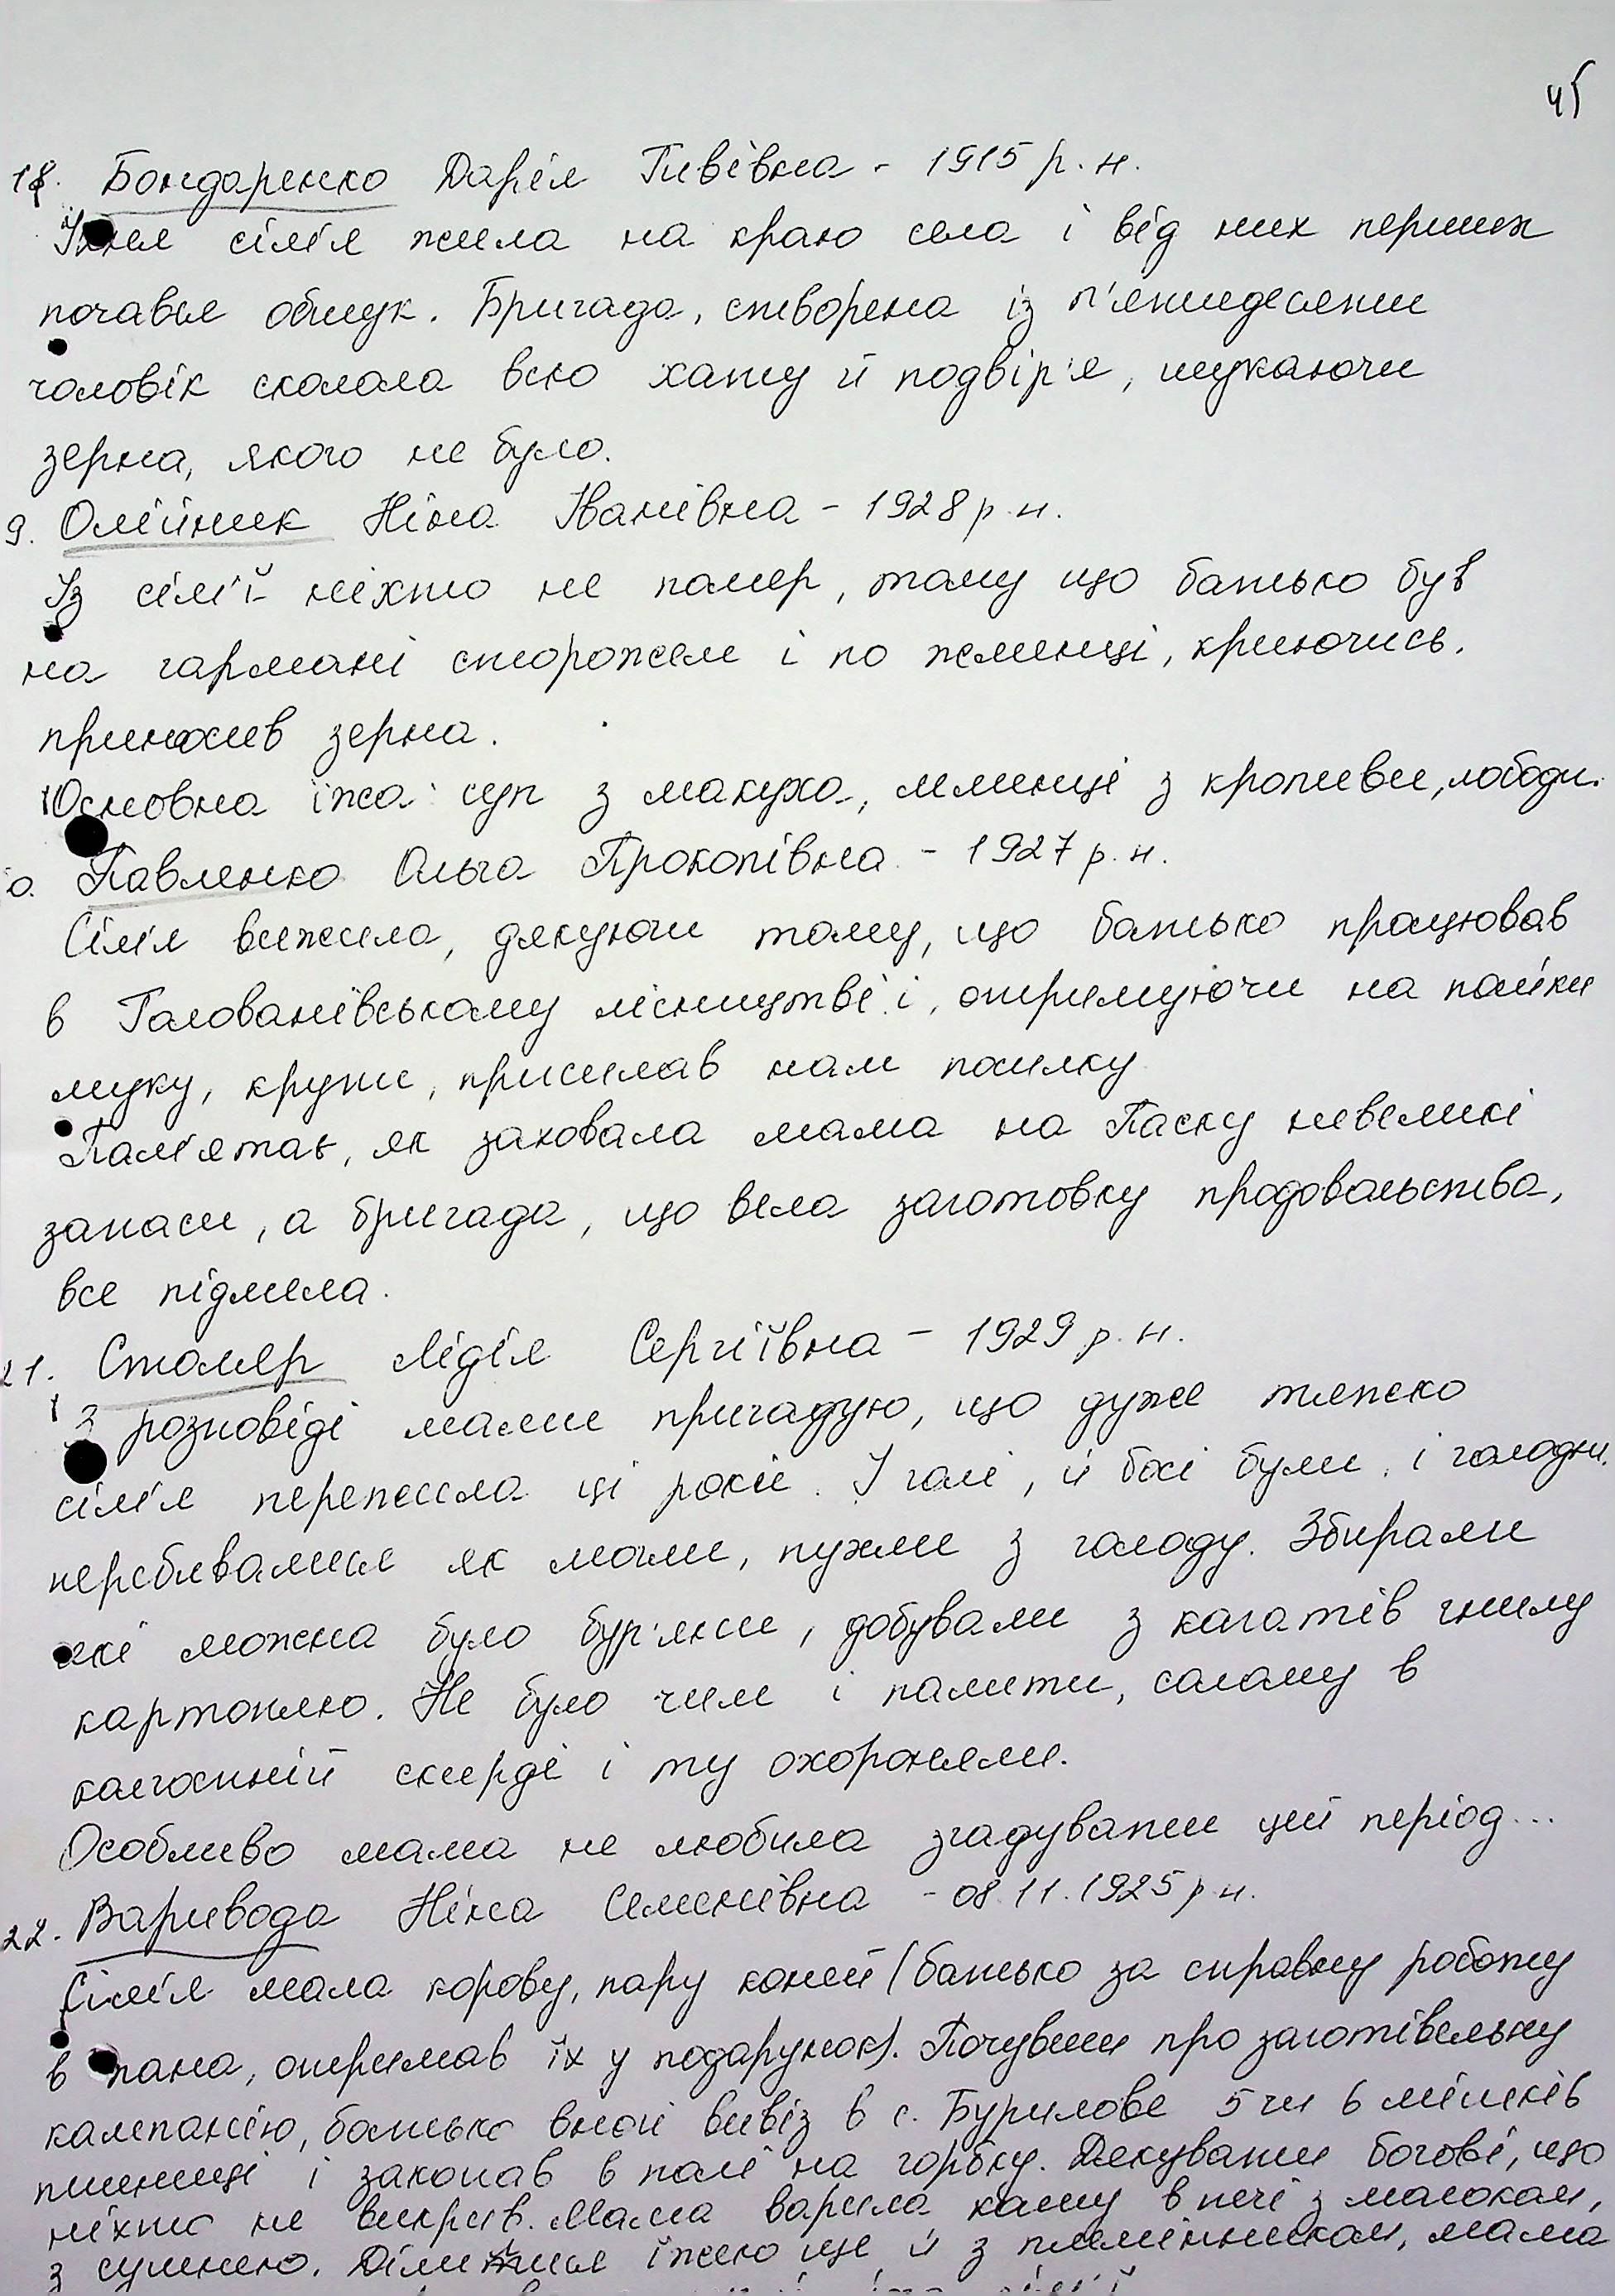 45
18. Бондаренко Дарія Гнвівна - 1915 р. н.
Їхня сім'я жила на краю села і від них перших
почався обшук. Бригада, створена із п'ятидесяти
чоловік сколола всю хату й подвір'я, шукаючи
зерна, якого не було.
9. Олійник Ніна Іванівна - 1928 р. н.
Із сім'ї ніхто не помер, тому що батько був
на гармані сторожем і по жменці, криючись,
приносив зерна.
Основна їжа: суп з макухи, млинці з кропиви, лободи.
0. Павленко Ольга Прокопівна - 1927 р. н.
Сім'я вижила, дякуючи тому, що батько працював
в Голованівському лісництві і, отримуючи на пайки
муку, крупи, присилав нам посилку
Пам'ятаю, як заховала мама на Паску невеликі
запаси, а бригада, що вела заготовку продовольства,
все підмела.
21. Столяр Лідія Сергіївна - 1929 р. н.
З розповіді мами пригадую, що дуже тяжко
сім'я перенесла ці роки. І голі, й босі були, і голодні.
перебивалися як могли, пухли з голоду. Збирали
які можна було бур'яни, добували з кагатів гнилу
картоплю. Не було чим і палити, солому в
колгоспній скирді і ту охороняли.
Особливо мама не любила згадувати цей період...
22. Варивода Ніна Семенівна - 08.11.1925 р. н.
Сім'я мала корову, пару коней (батько за справну роботу
в пана, отримав їх у подарунок). Почувши про заготівельну
кампанію, батько вночі вивіз в с. Бурилове 5 чи 6 мішків
пшениці і закопав в полі на горбку. Дякувати богові, що
ніхто не викрив. Мама варила кашу в печі з молоком,
з сушнею. Ділилися їжею ще й з племінником, мама